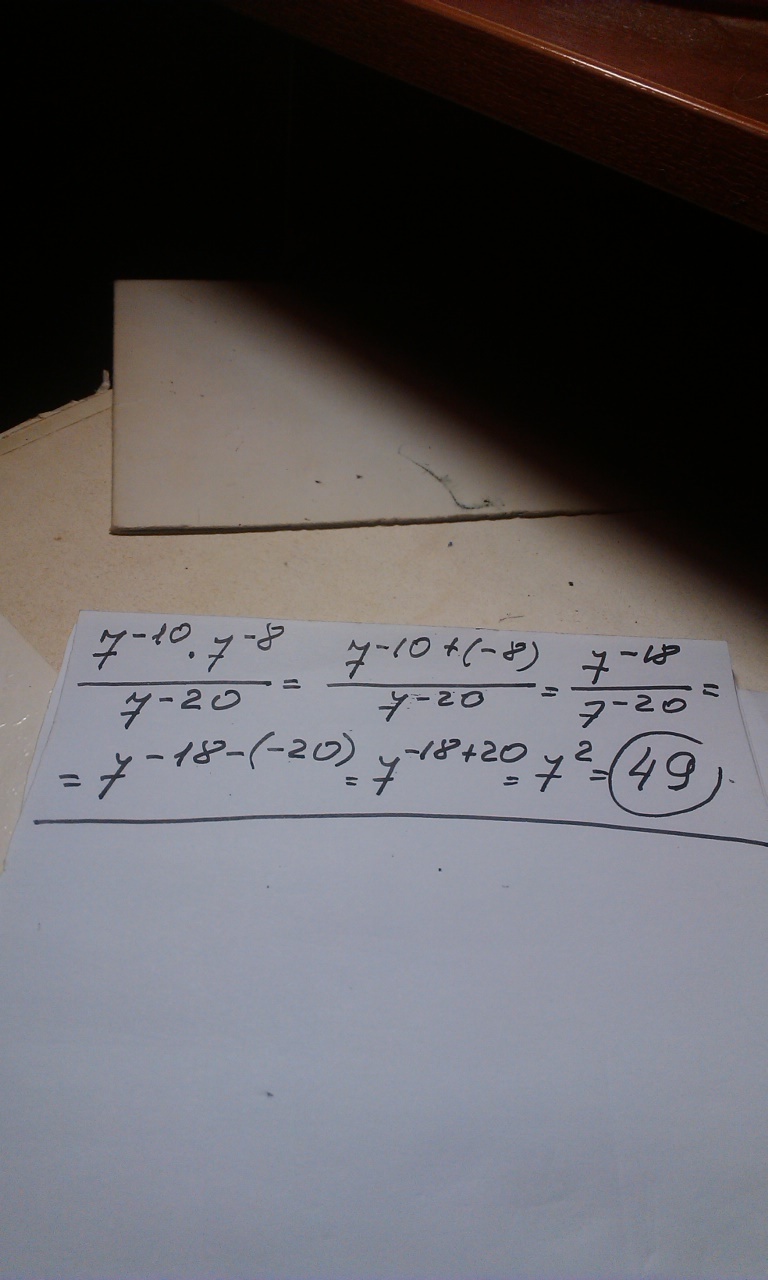 7^-10 · 7^-8 / 7^-20 = 7^-10+(-8) / 7^-20 = 7^-18 / 7^-20 =
= 7^-18-(-20) = 7^-18+20 = 7^2 = 49.